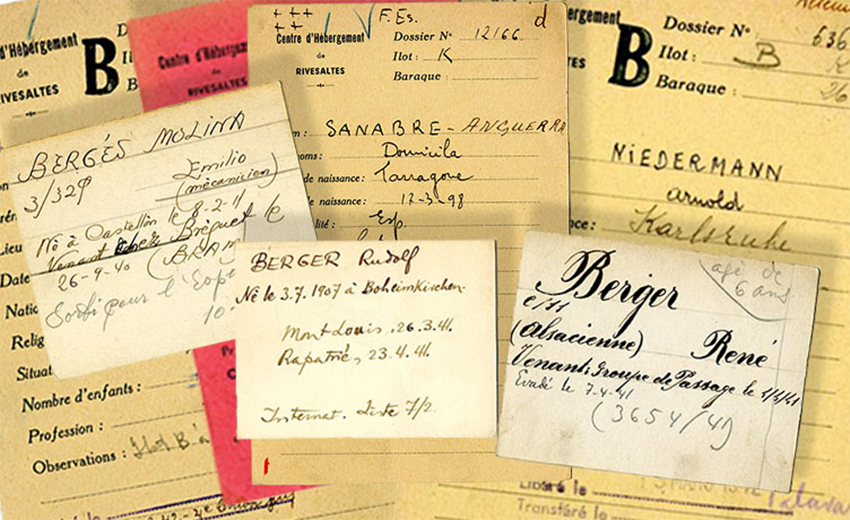 d'Hébergement
de
RIVESALTES
B
Centre d'Hébergem
de
RIVESALTES
F. Es.
d
Centre d'Hébergement
de
RIVESALTES
Dossier N° 12166
Ilot : K
Baraque :
SANABRE - ANGUERRA
noms : Domicila
de naissance : Tarragone
de naissance : 12-3-98
lité : Esp.
ergement
TES
B
Dossier N° 636
Ilot : B K
Baraque : 26
NIEDERMANN
Arnold
ce : Karlsruhe
BERGÉS MOLINA
3/329
Emilio
(mécanicien)
Né à Castellón le 8-2-11
Venant chez Bréguet le
26-9-40 (BRAM
Sorti pour l'Esp
10-
Lieu
Date
Natio
Relig
Situat
Nombre d'enfants :
Profession :
Observations : Ilot B à
BERGER Rudolf
Né le 3.7.1907 à Boheimkirchen.
Mont Louis, 26.3.41.
Rapatrié, 23.4.41.
Internat. Liste 7/2
Berger
agé de
6 ans
(alsacienne)
René
Venant: Groupe de Passage le 1/4/41
Evadé le 7-4-41
(3654/41)
Libéré le
Transféré le